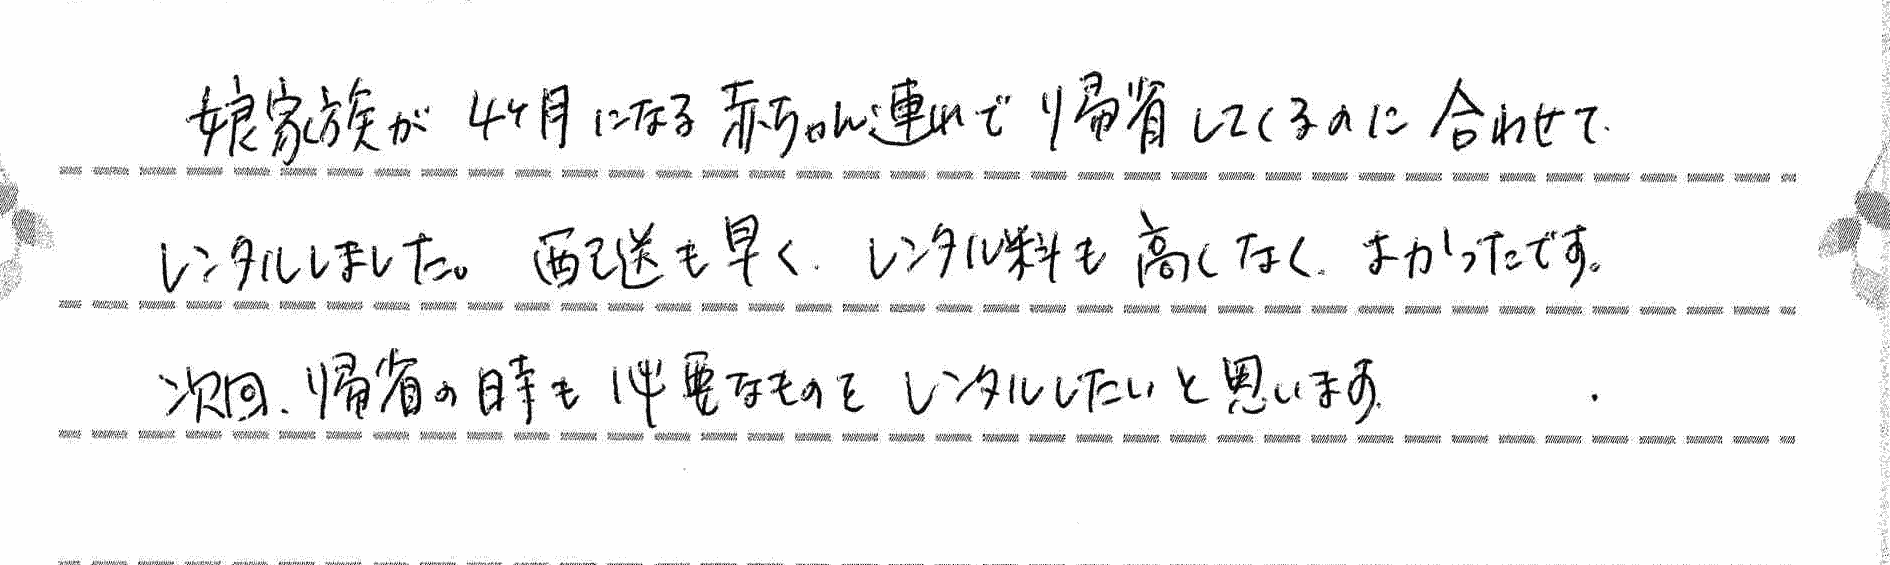 娘家族が4ヶ月になる赤ちゃん連れで帰省してくるのに合わせて
レンタルしました。配送も早く、レンタル料も高くなく、よかったです。
次回、帰省の時も必要なものをレンタルしたいと思います。